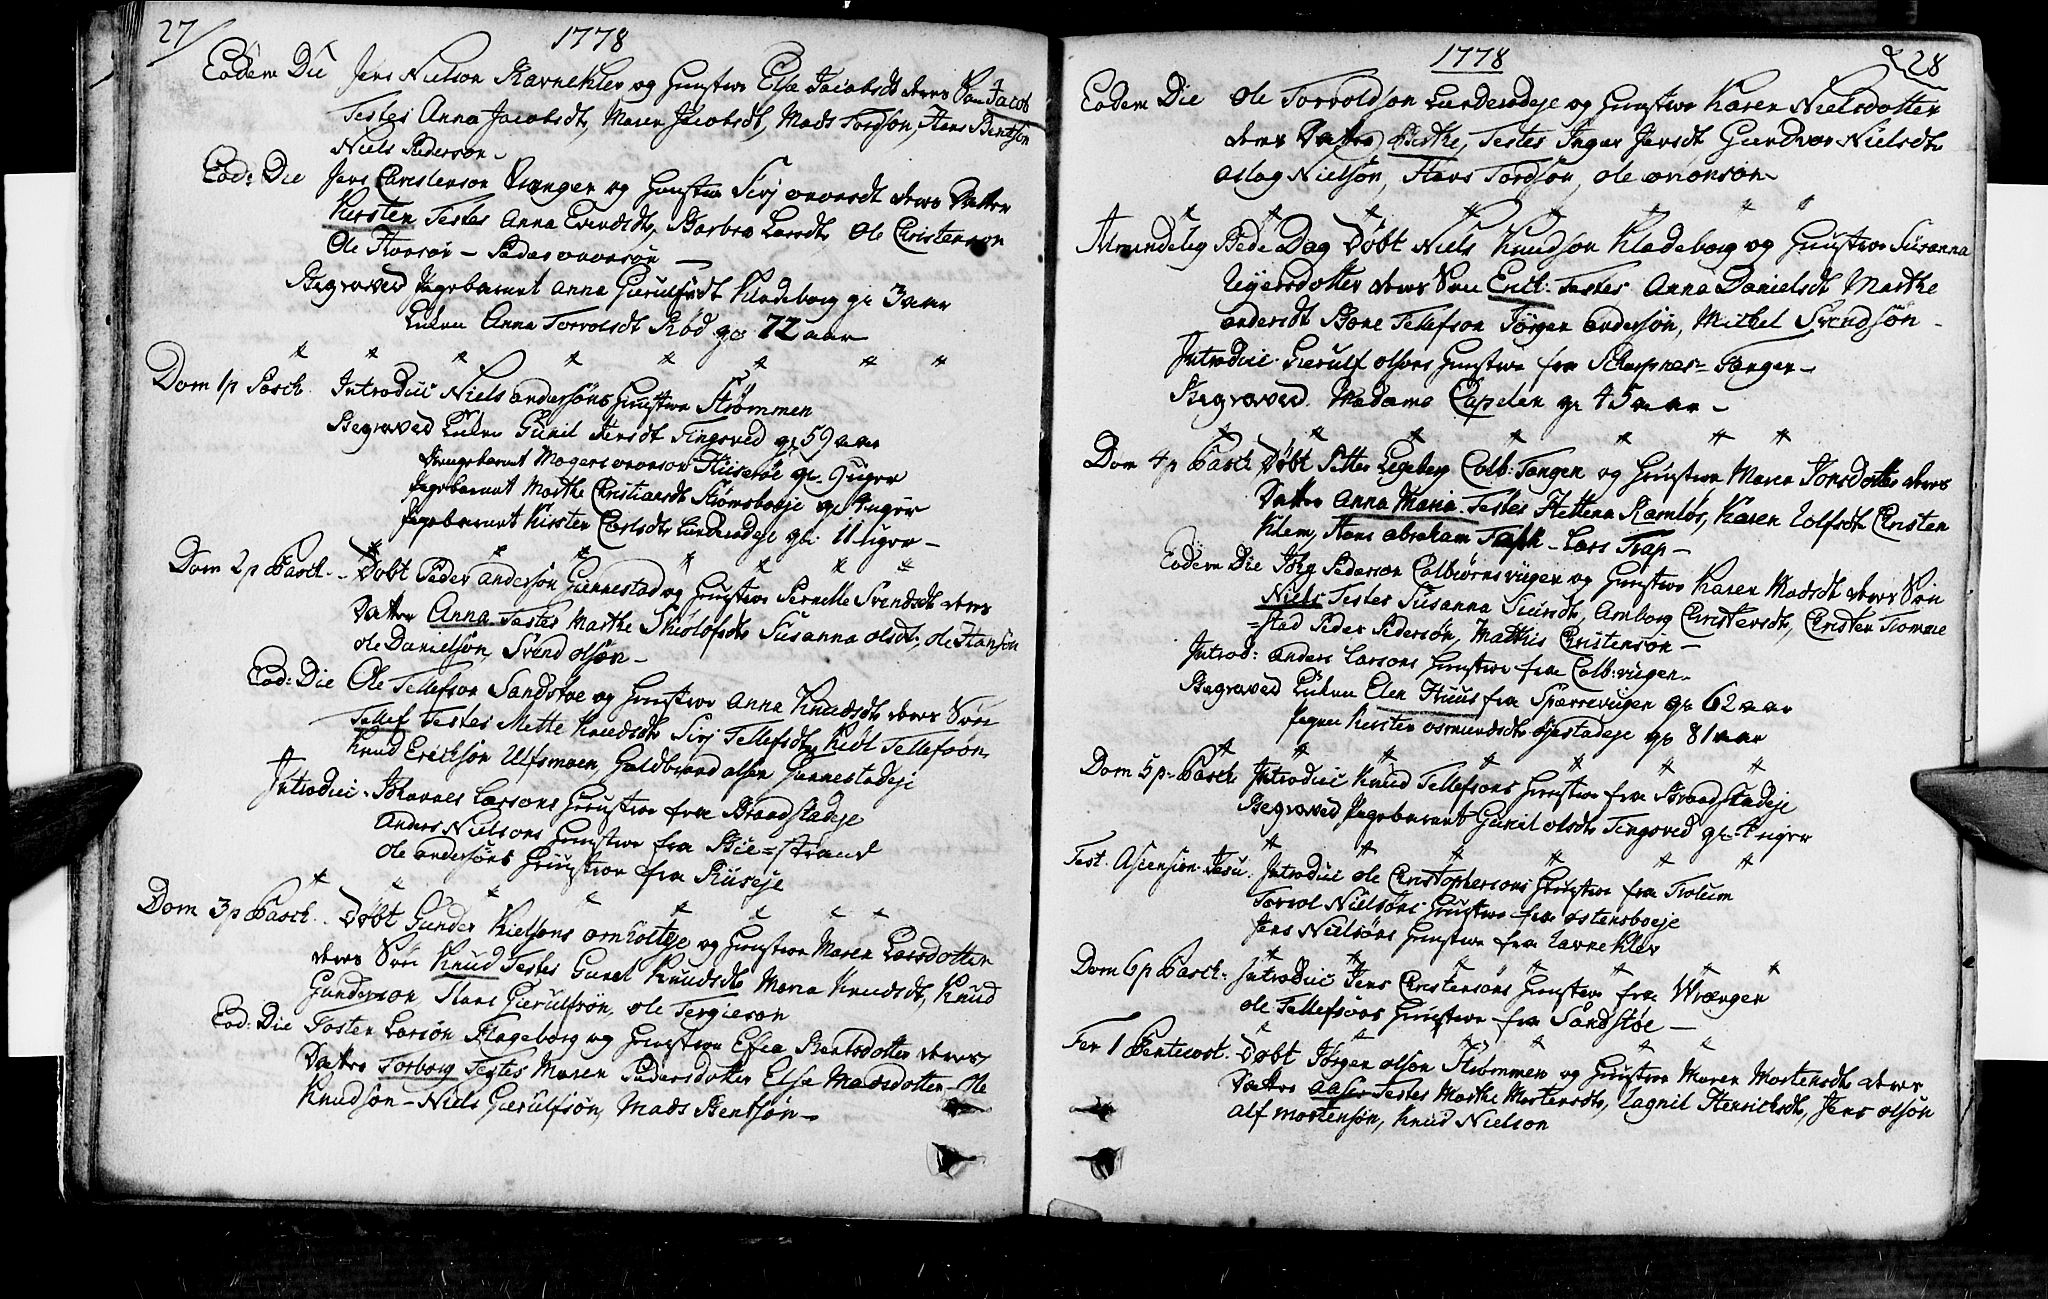 27
1778
Eodem Die Jens Nielson Ravnekler og Hustroe Else Jacobsdt deres Søn Jacob
Testes Anna Jacobsdt, Maren Jacobsdt, Mads Tordson, Hans Bentson
Niels Pederson
Eod: Die Jens Christenson Vrænger og Hustroe Sirj deres Datter
Kirsten Testes Anna Evendsdt, Barbro Larsdt, Ole Christenson
Ole
Begraved Pigebarnet Anna Gierulfsdt Kladeborg gl 3 aar
Enken Anna Torvolsdt Rød gl 72 aar
Dom 1 p Pasch. Introduc Niels Andersøns Hustroe Strømmen
Begraved Enken Gunil Jensdt Tingsved gl 59 aar
Drengebarnet Mogens Huserøe gl. 9 uger
Pigebarnet Marthe Christiansdt Strømsboeje gl uger
Pigebarnet Kirsten Carlsdt Lunderødeje gl. 11 uger
Dom 2 p Pasch. Døbt Peder Anderson Gunnestad og Hustroe Pernelle Svendsdt deres
Datter Anna Testes Marthe Susanna Olsdt, Ole Hanson
Ole Danielson, Svend Olson
Eod: Die Ole Tellefson Sandstøe og Hustroe Anna Knudsdt deres Søn
Tellef Testes Mette Knudsdt Sirj Tellefsdt, Kiøl Tellefsøn
Knud Erickson Ulfsmoen, Guldbrand Olsen Gunnestadeje
Introduc. Johannes Larsons Hustroe fra Braadstadeje
Anders Nielsons Hustroe fra Bie=strand
Ole Andersøns Hustroe fra Ruseje
Dom 3 p Pasch. Døbt Gunder Kielsons Omholteje og Hustroe Maren Larsdotter
deres Søn Knud Testes Gunel Knudsdt Maria Knudsdt, Knud
Gunderson, Hans Gierulfson, Ole Tergieson
Eod: Die Tosten Larson Flageborg og Hustroe Bentsdotter deres
Datter Torborg Testes Maren Pedersdotter Else Madsdotter Ole
Knudson - Niels Gierulfsøn, Mads Bentsøn
28
1778
Eodem Die Ole Torvoldson Lunderødeje og Hustroe Karen Nielsdotter
deres Datter Birthe, Testes Inger Jensdt Gundvor Nielsdt
Aslag Nielson, Hans Tordson, Ole
Almindelig Bede Dag Døbt Niels Knudson Kladeborg og Hustroe Susanna
deres Søn Erik. Testes Anna Danielsdt Marthe
Andersdt Bone Tellefson Jørgen Anderson, Mickel Svendsøn
Introduc. Gierulf Olsons Hustroe fra Tangen
Begraved. Madame Capelen gl 45 aar
Dom 4 p Pasch Døbt Colb: Tangen og Hustroe Maren Jonsdotter deres
Datter Anna Maria Testes Hellena Ramløs, Karen Ulfsdt Christen
Klem, Hans Abraham Lars Trap
Eodem Die Pederson Colbiørnsvigen og Hustroe Karen Madsdt deres Søn
Niels Testes Susanna Amborg Christensdt, Christen Tromme
=stad Peder Pedersøn, Mathis Christensøn
Introd: Anders Larsons Hustroe fra Colb:vigen
Begraved Enken Elen Huus fra Spærrevigen gl 62 aar
Pigen Kirsten Osmundsdt Øjestadeje gl 81 aar
Dom 5 p. Pasch Introduc Knud Tellefsons Hustroe fra Braadstadeje
Begraved Pigebarnet Gunil Olsdt Tingsved gl. uger
Fest. Ascension. Jesu. Introduc Ole Christophersons Hustroe fra Trolum
Torvol Nielsons Hustroe fra Østensboeje
Jens Nielsøns Hustroe fra Ravnekler
Dom 6 p Pasch. Introduc Jens Christensøns Hustroe fra Wrængen
Ole Tellefsøns Hustroe fra Sandstøe
Fer 1 Pentecost. Døbt Jørgen Olson Strømmen og Hustroe Maren Mortensdt deres
Datter Aase Testes Marthe Mortensdt, Ragnil Henricksdt, Jens Olsøn
Alf Mortensøn, Knud Nielson